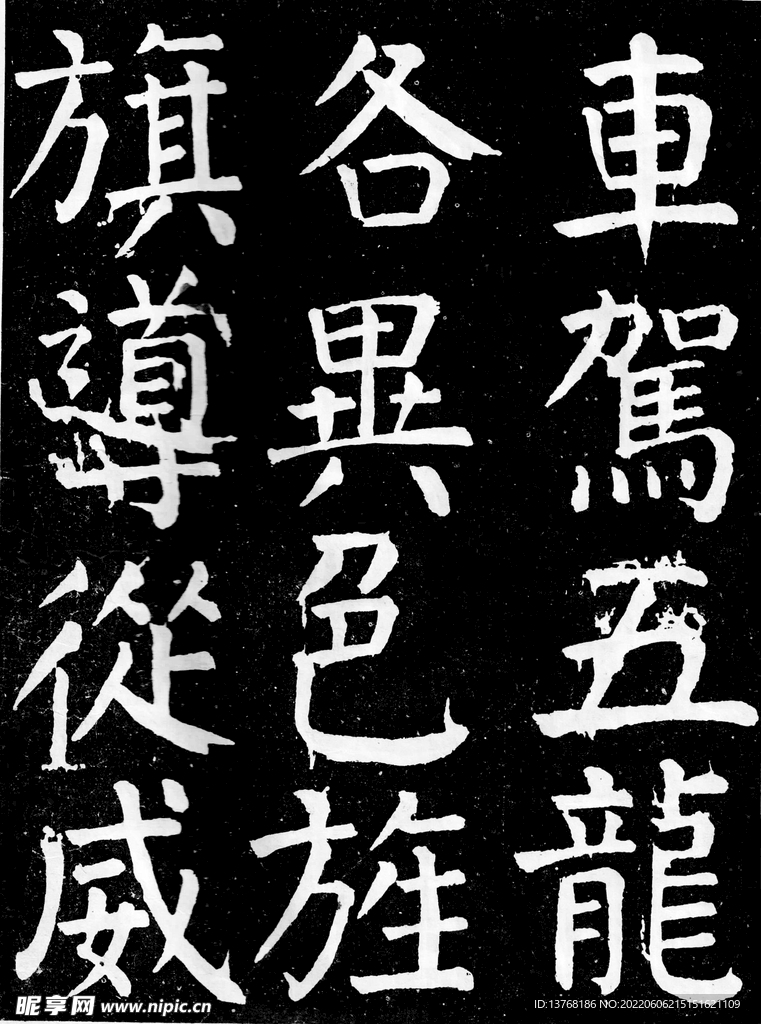 車駕五龍
各異色旌
旗導從威
昵享网 www.nipic.cn
ID:13768186 NO:20220606215151621109